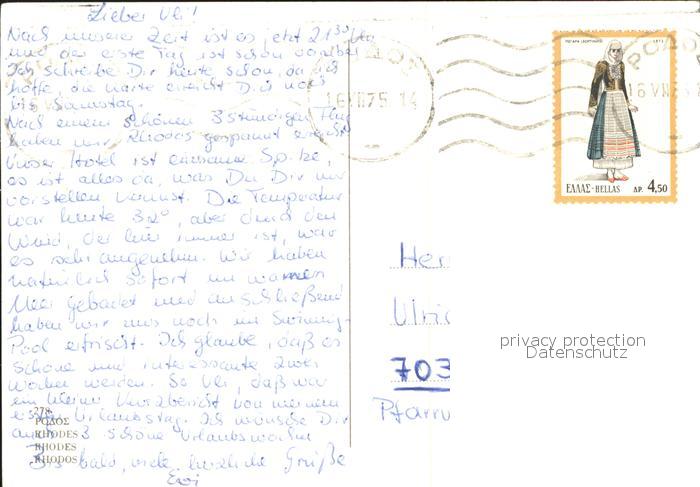 Lieber Uli!
Nach unserer Zeit ist es jetzt 21³⁰ Uhr
und der erste Tag ist schon vorüber.
Ich schreibe Dir heute schon, da ich
hoffe, die Karte erreicht Dich noch
bis Samstag.
Nach einem schönen 3stündigen Flug
haben wir Rhodos gespannt erreicht.
Unser Hotel ist einsame Spitze,
es ist alles da, was Du Dir nur
vorstellen kannst. Die Temperatur
war heute 32°, aber durch den
Wind, der hier immer ist, war
es sehr angenehm. Wir haben
natürlich sofort im warmen
Meer gebadet und anschließend
haben wir uns noch im Swimming-
Pool erfrischt. Ich glaube, daß es
schöne und interessante zwei
Wochen werden. So Uli, daß war
ein kleiner Kurzbericht von meinem
ersten Urlaubstag. Ich wünsche Dir
auch 3 schöne Urlaubswochen
Bis bald, viele herzliche Grüße
Evi
278
ΡΟΔΟΣ
RHODES
RHODES
RHODOS
ΡΟΔΟΣ
16 VII 75 14
ΡΟΔΟΣ
16 VII 7
ΜΕΓΑΡΑ (ΑΤΤΙΚΗΣ)
ΕΛΛΑΣ-HELLAS ΔΡ. 4,50
Her
Ulric
703
Pfarrw
privacy protection
Datenschutz